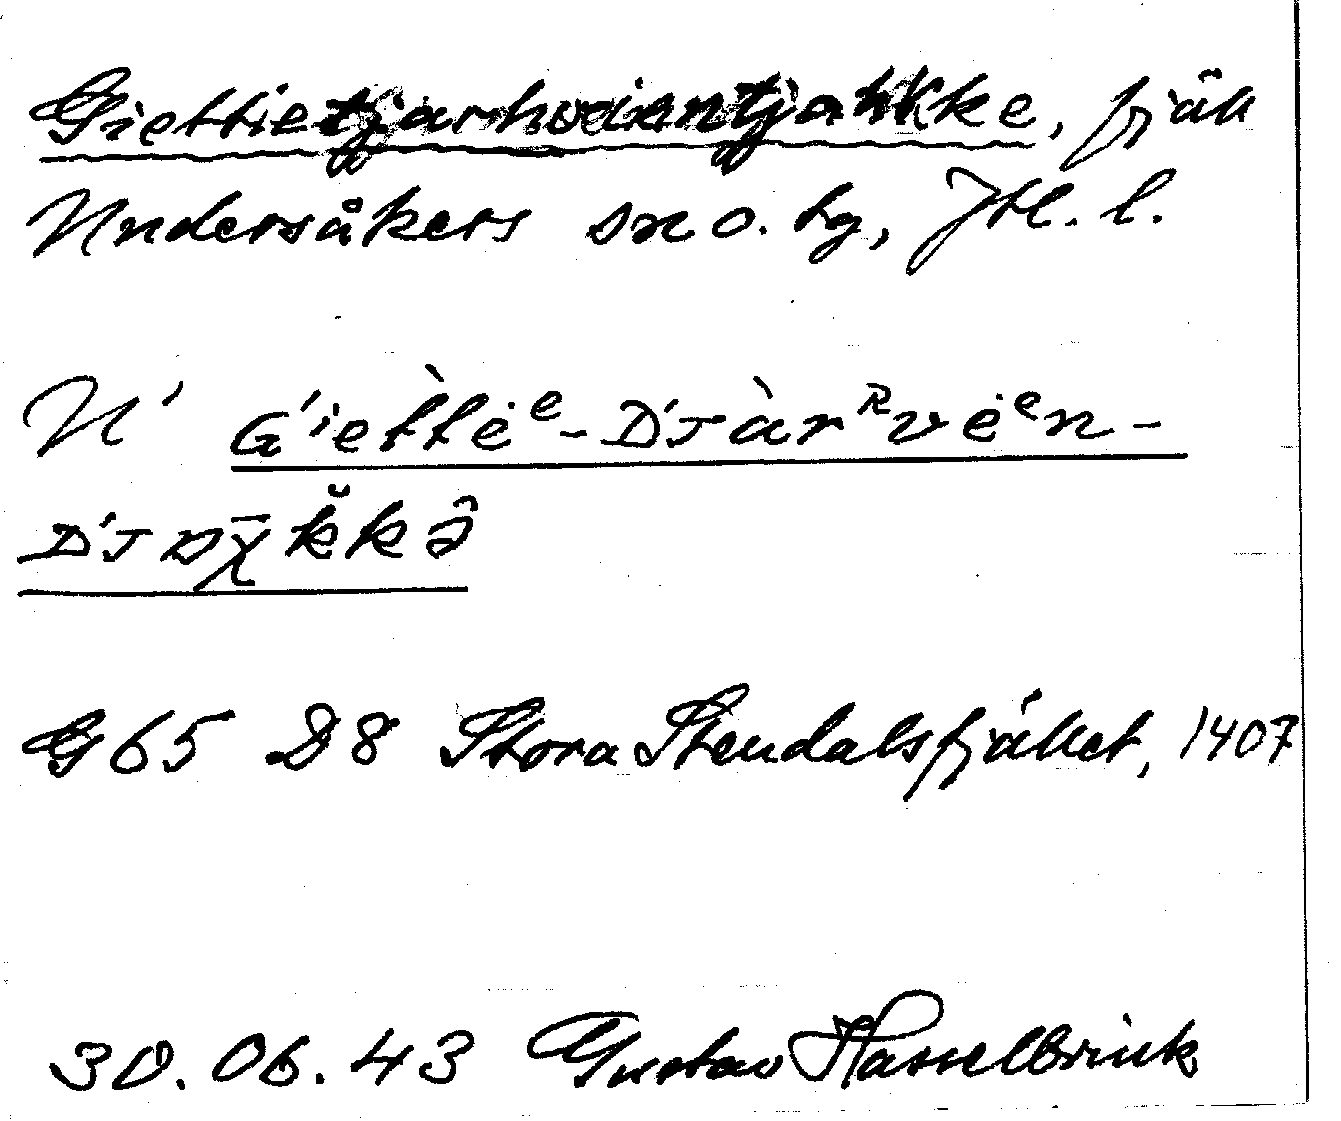 Giettietjarhvientjahkke, fjäll
Undersåkers sn o. tg, Jtl. l.
N' G'iettėᵉ-D'Jàrᴿvėᵉn-
D'Jᴅχ̄k̆kâ
G65 D8 Stora Stendalsfjället, 1407
30.06.43 Gustav Hasselbrink